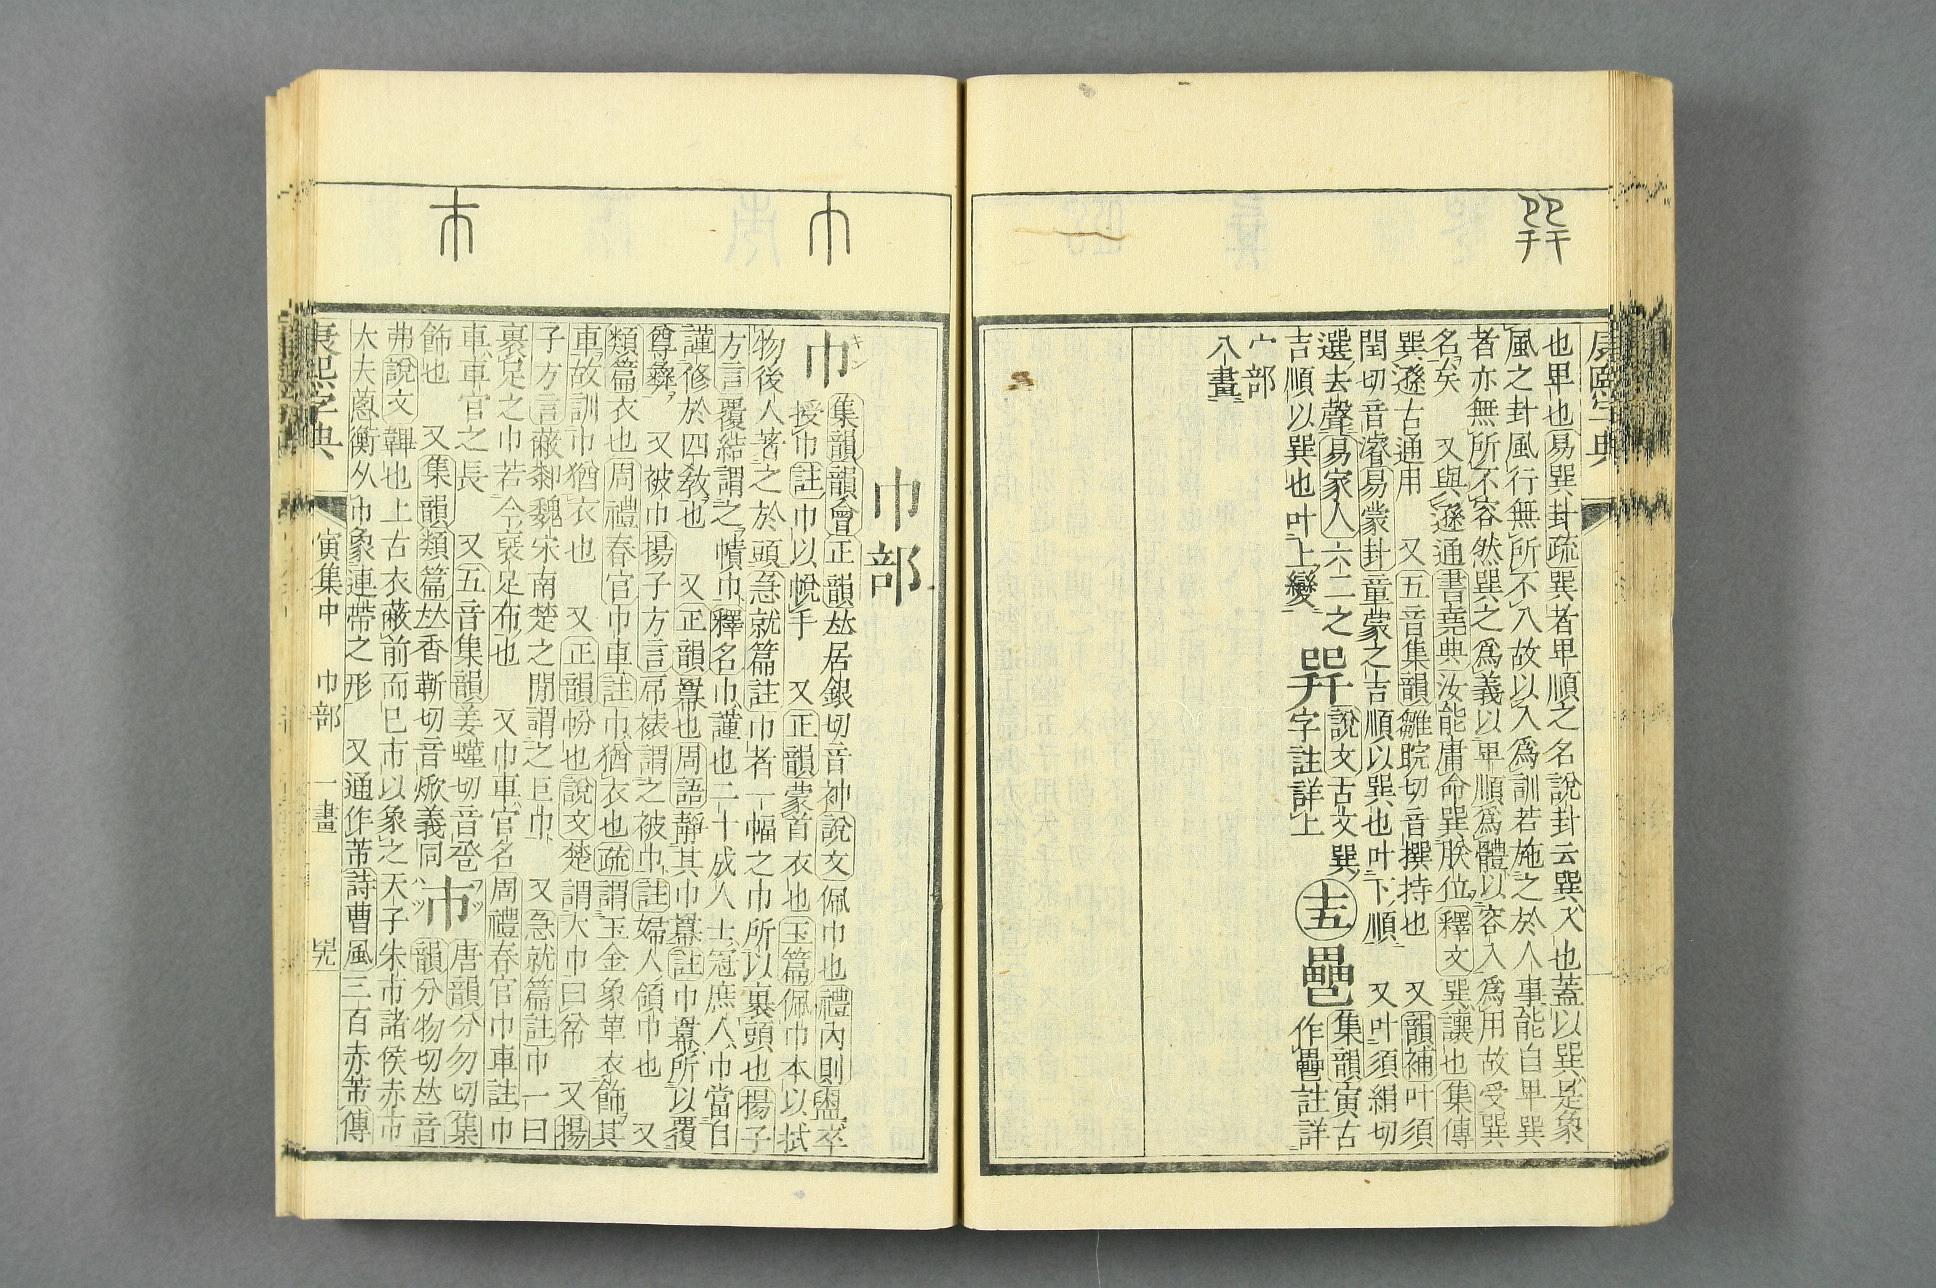 巽
康熙字典
也卑也易巽卦疏巽者卑順之名說卦云巽入也蓋以巽是象
風之卦風行無所不入故以入爲訓若施之於人事能自卑巽
者亦無所不容然巽之爲義以卑順爲體以容入爲用故受巽
名矣 又與遜通書堯典汝能庸命巽朕位釋文巽讓也集傳
巽遜古通用 又五音集韻雛睆切音撰持也 又韻補叶須
閏切音濬易蒙卦童蒙之吉順以巽也叶下順 又叶須絹切
選去聲易家人六二之
吉順以巽也叶上變
㢲
說文古文巽
字註詳上
十五
集韻寅古
作註詳
宀部
八畫
巾
巿
巾部
巾
キン
集韻韻會正韻𠀤居銀切音神說文佩巾也禮內則盥卒
授巾註巾以帨手 又正韻蒙首衣也玉篇佩巾本以拭
物後人著之於頭急就篇註巾者一幅之巾所以裹頭也揚子
方言覆結謂之幘巾釋名巾謹也二十成人士冠庶人巾當自
謹修於四敎也 又正韻冪也周語靜其巾冪註巾冪所以覆
尊彝 又被巾揚子方言帍裱謂之被巾註婦人領巾也 又
類篇衣也周禮春官巾車註巾猶衣也疏謂玉金象革衣飾其
車故訓巾猶衣也 又正韻帉也說文楚謂大巾曰帉 又揚
子方言蔽䣛魏宋南楚之閒謂之巨巾 又急就篇註巾一曰
裹足之巾若今裹足布也 又巾車官名周禮春官巾車註巾
車車官之長 又五音集韻姜𧏙切音卺
飾也 又集韻類篇𠀤香靳切音焮義同
巿
フツ
ハツ
唐韻分勿切集
韻分物切𠀤音
弗說文韠也上古衣蔽前而已巿以象之天子朱巿諸侯赤巿
大夫蔥衡外巾象連帶之形 又通作芾詩曹風三百赤芾傳
康熙字典 寅集中 巾部 一畫